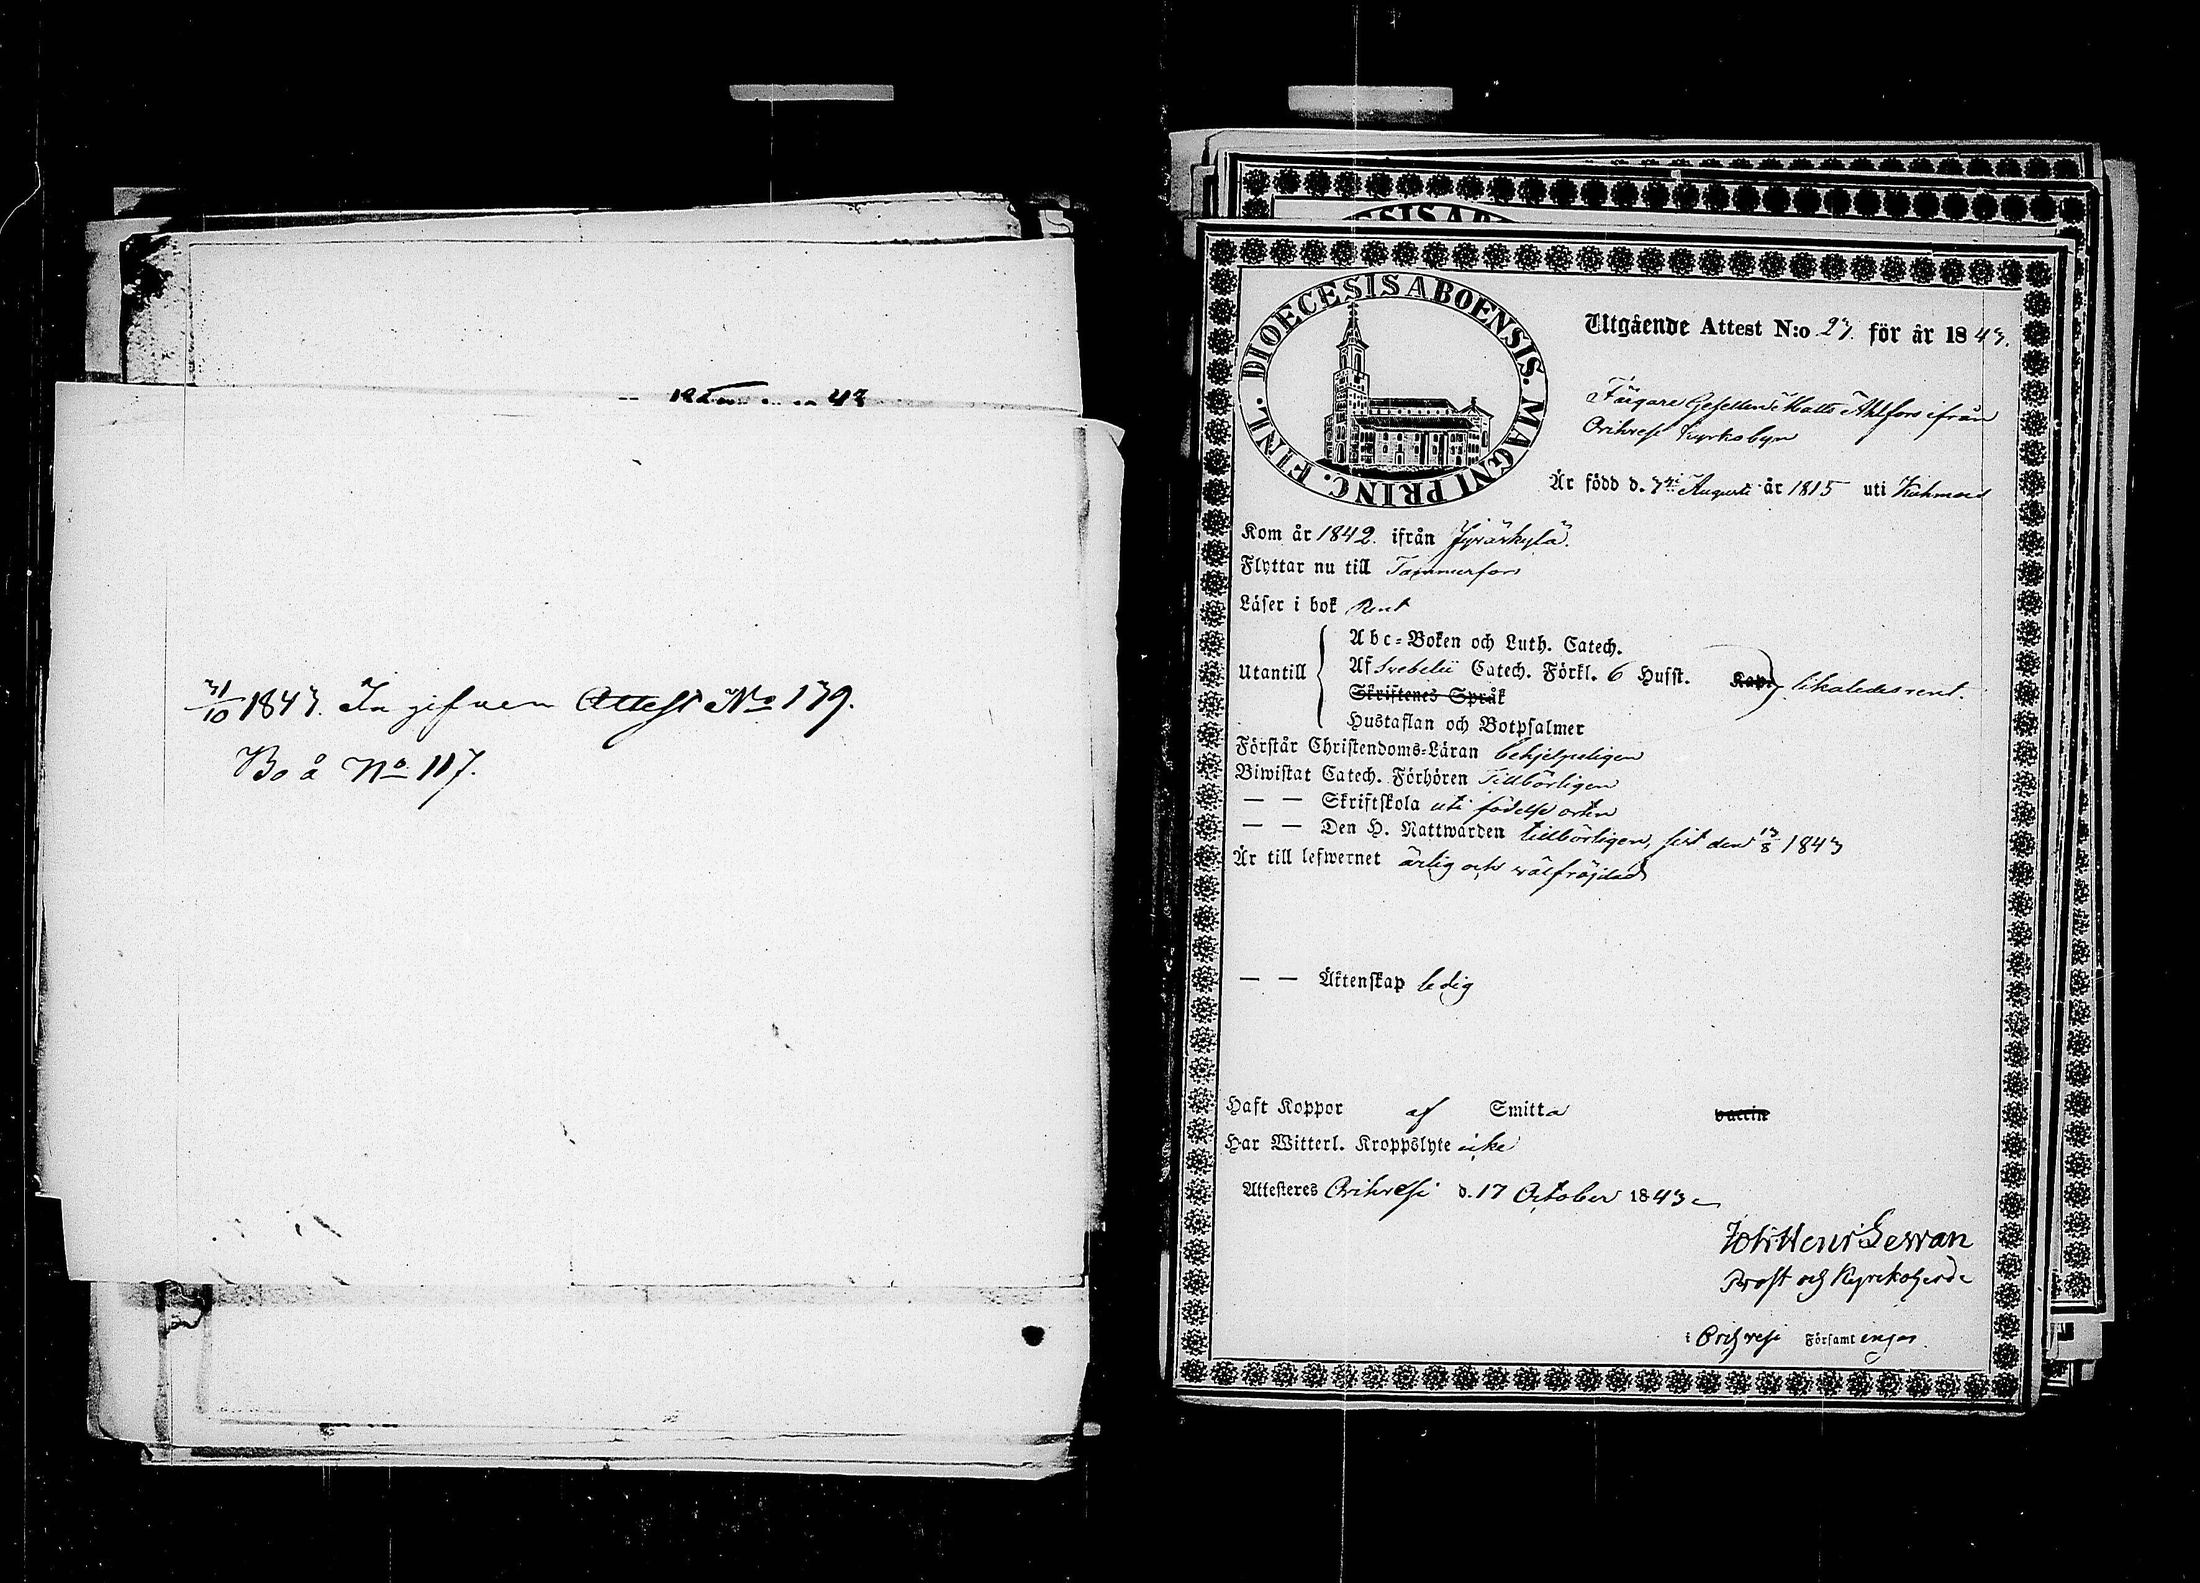 31/10 1843. Ingifven Attest No 139.
Bo å No 117.
DIOECESIS ABOENSIS. MAGNI PRINC. FINL.
Utgående Attest N:o 23. för år 1843.
Färgare Gesellen Matts Ahlfors ifrån
Orihvesi Kyrkoby
Är född d. 7de Augusti år 1815 uti Kuhmois
Kom år 1842. ifrån Jyväskylä.
Flyttar nu till Tammerfors
Läser i bok Rent
Utantill
Abc-Boken och Luth. Catech.
Af Svebelii Catech. Förkl. 6 Husst. Kap. likaledes rent.
Skriftenes Språk
Hustaflan och Botpsalmer
Förstår Christendoms-Läran behjelpeligen
Biwistat Catech. Förhören Tillbörligen
— — Skriftskola uti födelse orten
— — Den H. Nattwarden tillbörligen, sist den 13/8 1843
Är till lefwernet ärlig och välfräjdad
— — Äktenskap ledig
Haft Koppor af Smitta vaccin
Har Witterl. Kroppslyte icke
Attesteres Orihvesi d. 17 October 1843
Joh Henr Gewan
Prost och Kyrckoherde
i Orihvesi Församlingar.